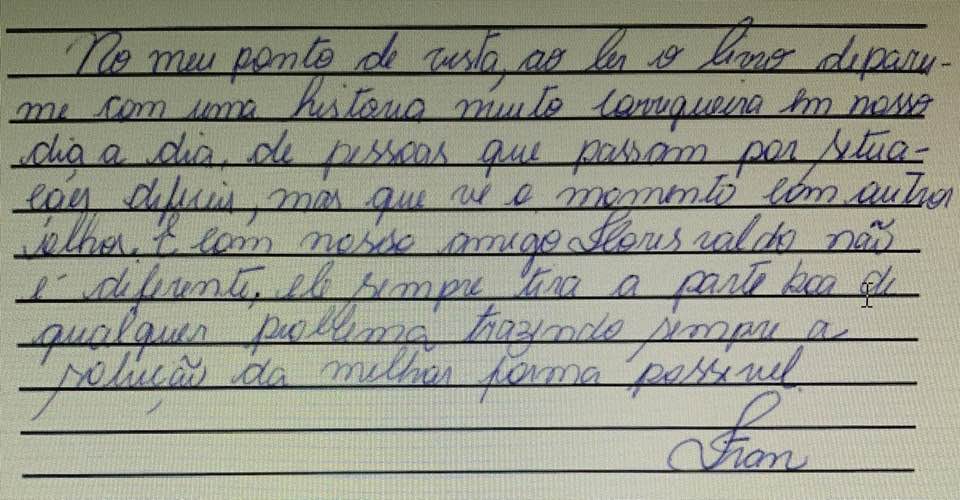 No meu ponto de vista, ao ler o livro deparu-
me com uma historia muito corriqueira em nosso
dia a dia, de pessoas que passam por situa-
ções dificeis, mas que vê o momento com outros
olhos. E com nosso amigo Florisvaldo não
é diferente, ele sempre tira a parte boa de
qualquer problema trazendo sempre a
solução da melhor forma possivel.
Fran